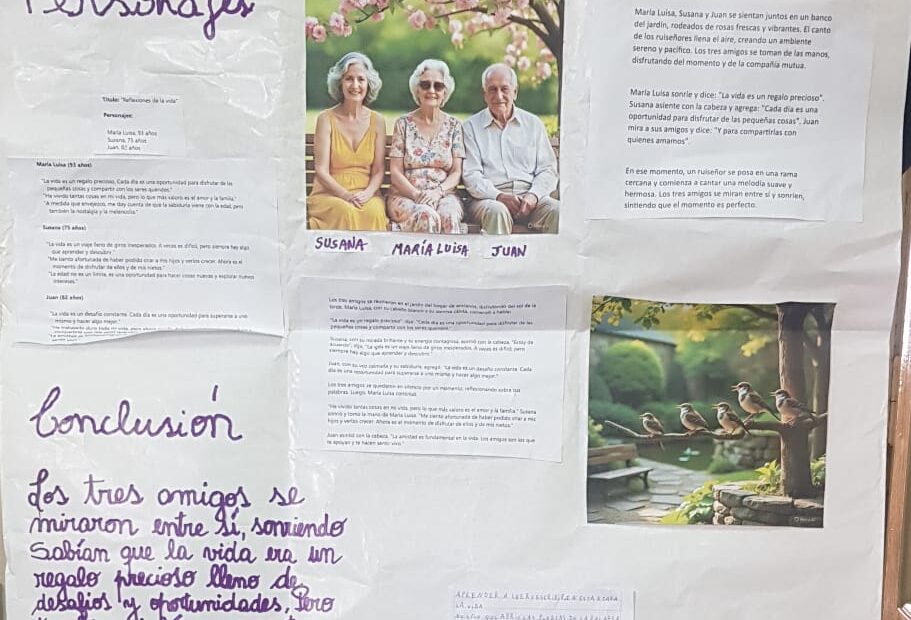 Personajes
Titulo: "Reflexiones de la vida"
Personajes:
María Luisa, 93 años
Susana, 75 años
Juan, 82 años
María Luisa (93 años)
"La vida es un regalo precioso. Cada día es una oportunidad para disfrutar de las
pequeñas cosas y compartir con los seres queridos."
"He vivido tantas cosas en mi vida, pero lo que más valoro es el amor y la familia."
"A medida que envejezco, me doy cuenta de que la sabiduría viene con la edad, pero
también la nostalgia y la melancolía."
Susana (75 años)
"La vida es un viaje lleno de giros inesperados. A veces es difícil, pero siempre hay algo
que aprender y descubrir."
"Me siento afortunada de haber podido criar a mis hijos y verlos crecer. Ahora es el
momento de disfrutar de ellos y de mis nietos."
"La edad no es un límite, es una oportunidad para hacer cosas nuevas y explorar nuevos
intereses."
Juan (82 años)
"La vida es un desafío constante. Cada día es una oportunidad para superarse a uno
mismo y hacer algo mejor."
SUSANA MARÍA LUISA JUAN
María Luisa, Susana y Juan se sientan juntos en un banco
del jardín, rodeados de rosas frescas y vibrantes. El canto
de los ruiseñores llena el aire, creando un ambiente
sereno y pacífico. Los tres amigos se toman de las manos,
disfrutando del momento y de la compañía mutua.
María Luisa sonríe y dice: "La vida es un regalo precioso".
Susana asiente con la cabeza y agrega: "Cada día es una
oportunidad para disfrutar de las pequeñas cosas". Juan
mira a sus amigos y dice: "Y para compartirlas con
quienes amamos".
En ese momento, un ruiseñor se posa en una rama
cercana y comienza a cantar una melodía suave y
hermosa. Los tres amigos se miran entre sí y sonríen,
sintiendo que el momento es perfecto.
Los tres amigos se reunieron en el jardín del hogar de ancianos, disfrutando del sol de la
tarde. María Luisa, con su cabello blanco y su sonrisa cálida, comenzó a hablar.
"La vida es un regalo precioso", dijo. "Cada día es una oportunidad para disfrutar de las
pequeñas cosas y compartir con los seres queridos."
Susana, con su mirada brillante y su energía contagiosa, asintió con la cabeza. "Estoy de
acuerdo", dijo. "La vida es un viaje lleno de giros inesperados. A veces es difícil, pero
siempre hay algo que aprender y descubrir."
Juan, con su voz calmada y su sabiduría, agregó: "La vida es un desafío constante. Cada
día es una oportunidad para superarse a uno mismo y hacer algo mejor."
Los tres amigos se quedaron en silencio por un momento, reflexionando sobre sus
palabras. Luego, María Luisa continuó.
"He vivido tantas cosas en mi vida, pero lo que más valoro es el amor y la familia." Susana
sonrió y tomó la mano de María Luisa. "Me siento afortunada de haber podido criar a mis
hijos y verlos crecer. Ahora es el momento de disfrutar de ellos y de mis nietos."
Juan asintió con la cabeza. "La amistad es fundamental en la vida. Los amigos son los que
te apoyan y te hacen sentir vivo."
Conclusión
Los tres amigos se
miraron entre sí, sonriendo
Sabían que la vida era un
regalo precioso lleno de
desafíos y oportunidades, Pero
APRENDER A LEER
LA VIDA